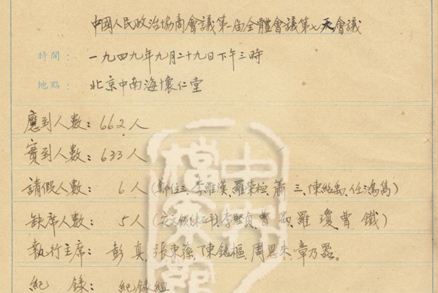 中國人民政治協商會議第一屆全體會議第七天會議
時間: 一九四九年九月二十九日下午三時
地點: 北京中南海懷仁堂
應到人數: 662人
實到人數: 633人
請假人數: 6人 (李維漢、羅榮桓、蕭三、陳紹禹、任鴻雋)
缺席人數: 5人 (羅瓊、曹鐵)
執行主席: 彭真、張東蓀、陳銘樞、周恩來、章乃器。
紀錄: 紀錄組
中央檔案館